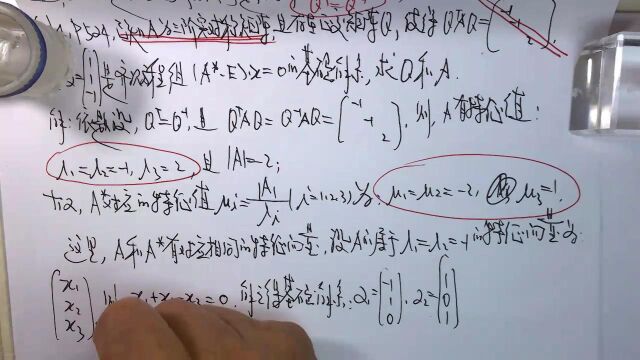 例, P504, 设A为三阶实对称矩阵,且存在正交矩阵Q,使得QᵀAQ=(-1 -1 2),
α=(1 1 -1)是齐次方程组(A*-E)x=0的基础解系,求Q和A.
解:依题设,Qᵀ=Q⁻¹,且 QᵀAQ=Q⁻¹AQ=(-1 -1 2), 则,A有特征值:
λ₁=λ₂=-1, λ₃=2, 且|A|=-2;
故, A*对应的特征值 μi=|A|/λi (i=1,2,3)为: μ₁=μ₂=-2, μ₃=1.
这里, A和A*有对应相同的特征向量, 设A的属于λ₁=λ₂=-1的特征向量为:
(x₁ x₂ x₃) x₁+x₂-x₃=0, 解之得基础解系: α₁=(-1 1 0), α₂=(1 0 1)